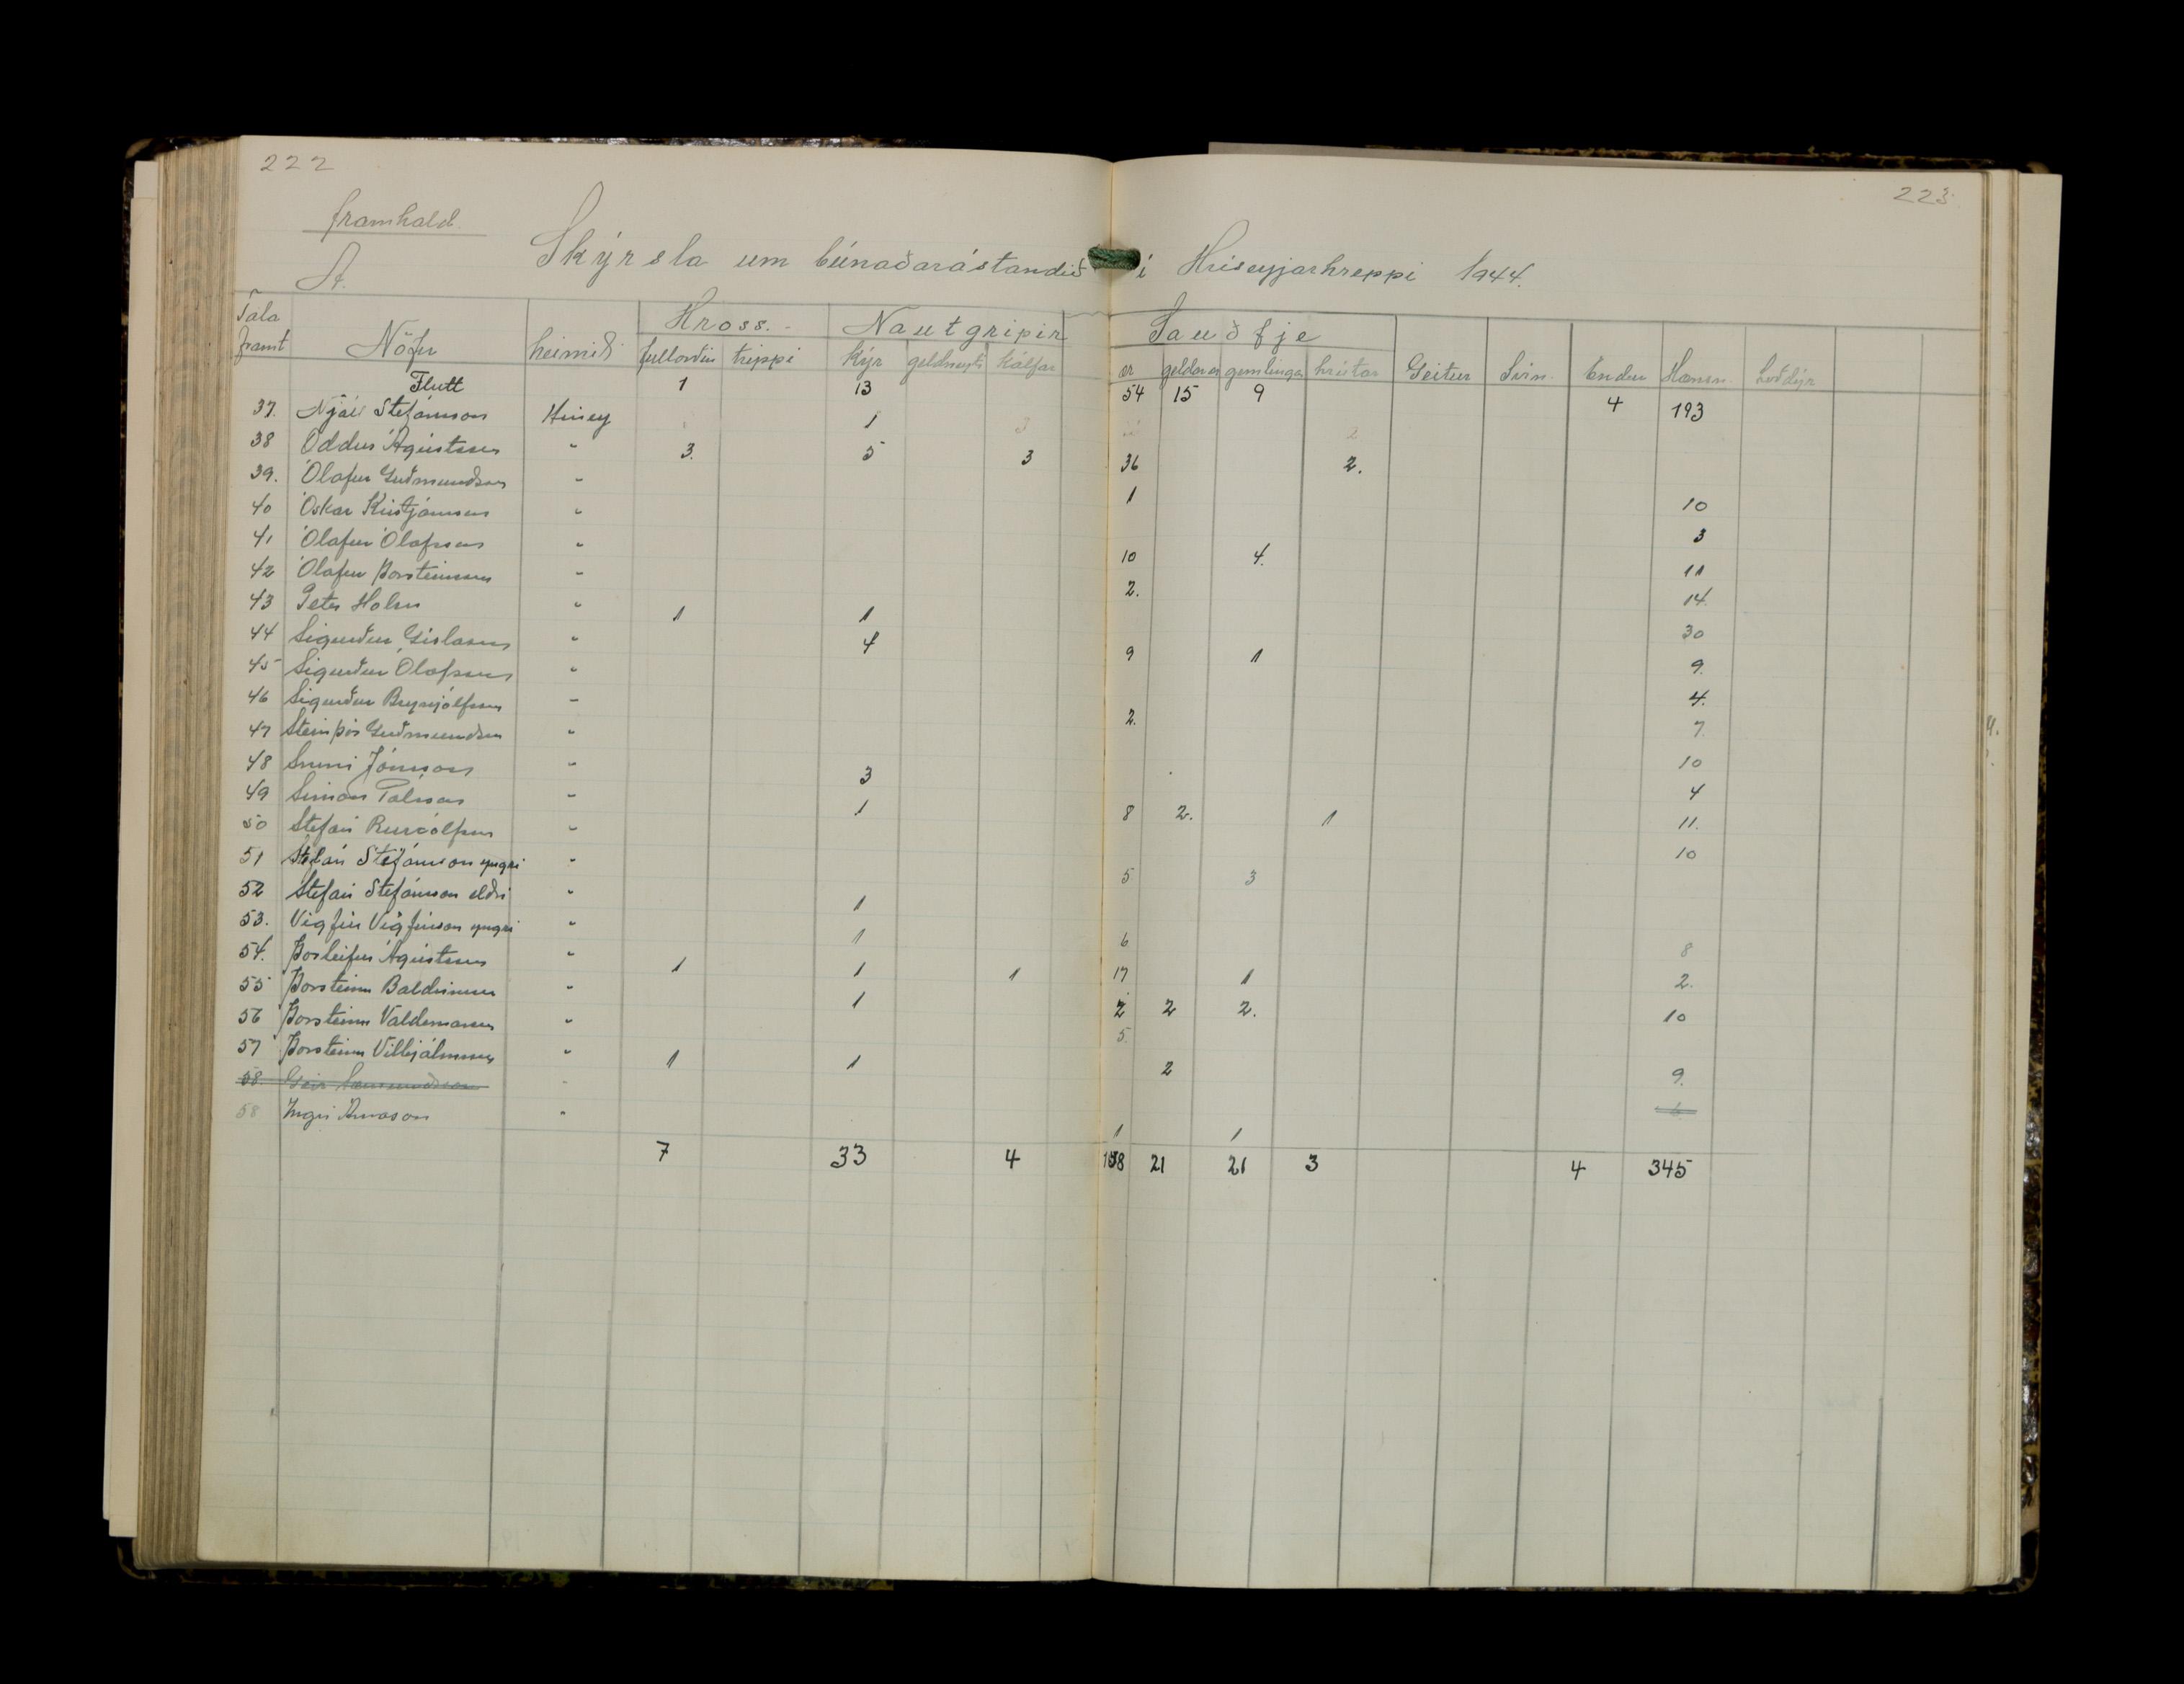 222
223
framhald
A. Skýrsla um búnaðarástandið í Hríseyjarhreppi 1944.
Hross. Nautgripir Sauðfje
Tala framt Nöfn heimili fullorðin trippi kýr geldneyti kálfar ær geldar ær gemlingar hrútar Geitur Svín Endur Hænsn Loðdýr
Flutt 1 13 54 15 9 4 193
37. Njáll Stefánsson Hrisey 1
38 Oddur Ágústsson " 3. 5 3 36 2.
39. Ólafur Guðmundsson " 1 10
40 Óskar Kristjánsson " 3
41 Ólafur Ólafsson " 10 4. 11
42 Ólafur Þorsteinsson " 2. 14.
43 Peter Holm " 1 1 30
44 Sigurður Gíslason " 4 9 1 9.
45 Sigurður Ólafsson " 4.
46 Sigurður Brynjólfsson " 2. 7.
47 Steinþór Guðmundsson " 10
48 Jónsson " 3 4
49 Símon Pálsson " 1 8 2. 1 11.
50 Stefán Runólfsson " 10
51 Stefán Stefánsson yngri " 5 3
52 Stefán Stefánsson eldri " 1
53. Vigfús Vigfússon yngri " 1 6 8
54. Þorleifur Ágústsson " 1 1 1 17 1 2.
55 Þorsteinn Baldvinsson " 1 2 2 2. 10
56 Þorsteinn Valdemarsson " 5.
57 Þorsteinn Vilhjálmsson " 1 1 2 9.
58. Geir Sæmundsson " 6
58 Ingvi Árnason " 1 1
7 33 4 158 21 21 3 4 345